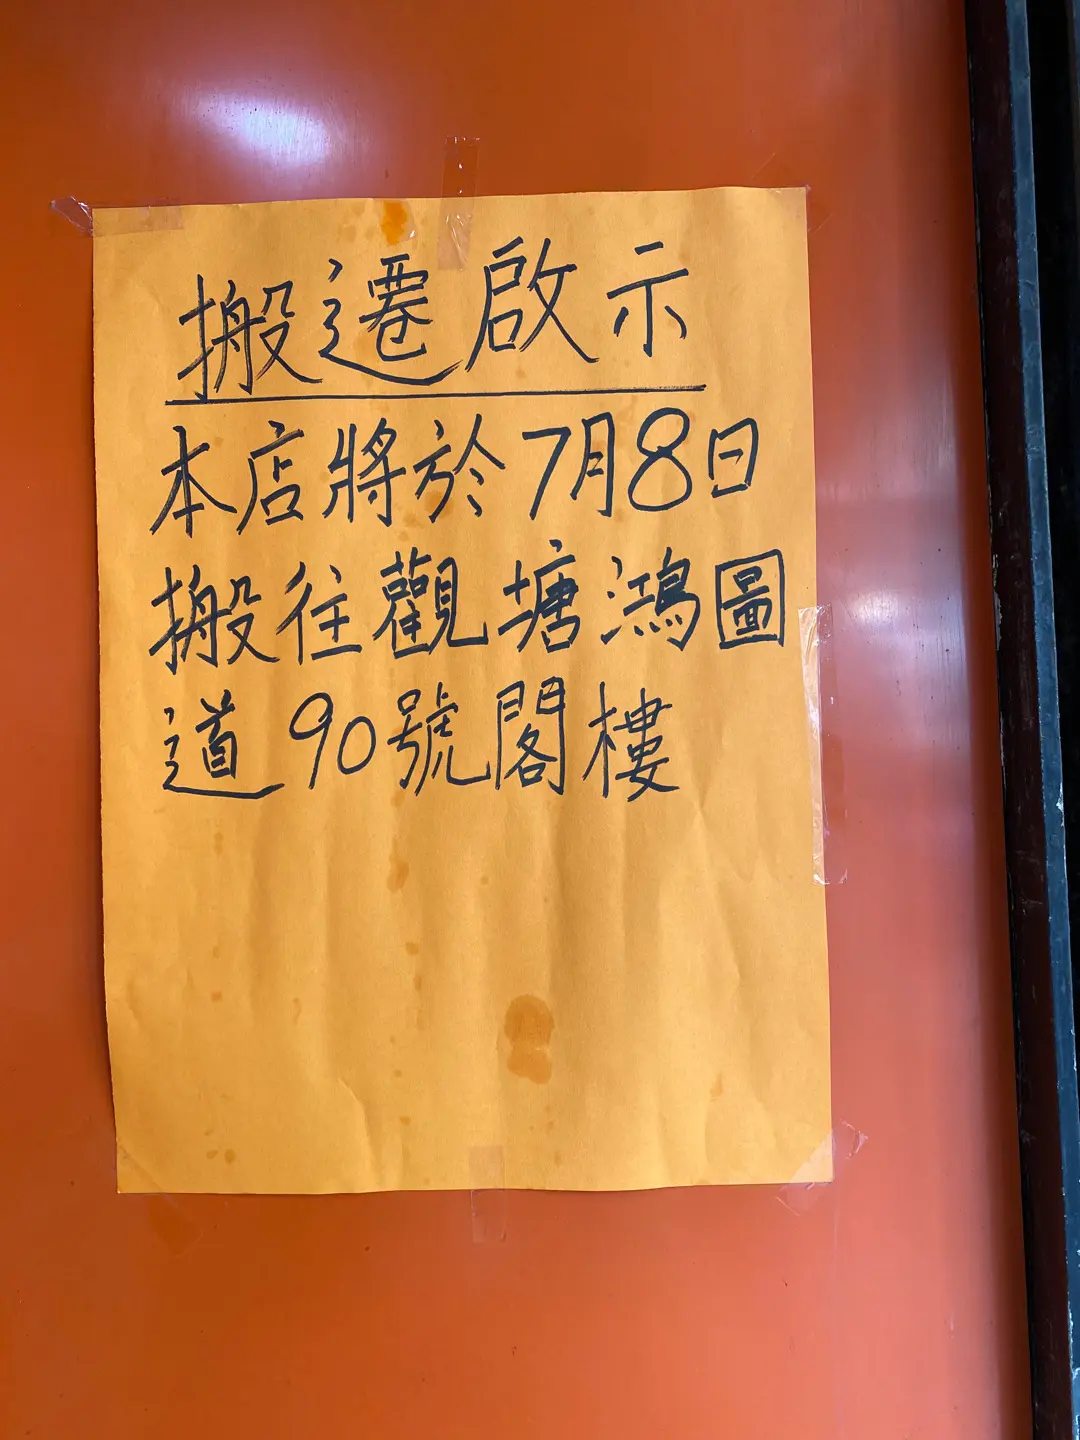 搬遷啟示
本店將於7月8日
搬往觀塘鴻圖
道90號閣樓